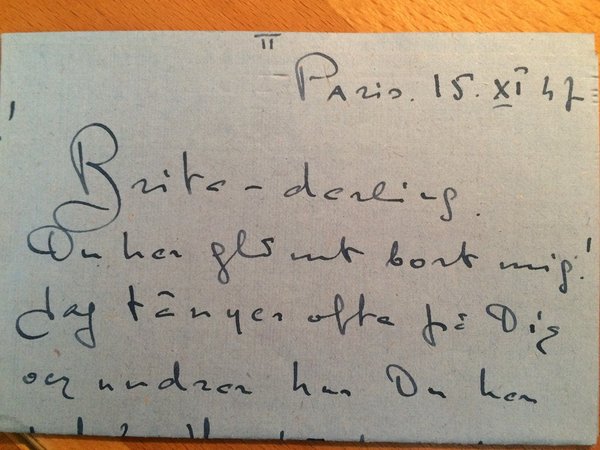 II
Paris. 15. XI 47
Brita-darling.
Du har glömt bort mig!
Jag tänker ofta på Dig
och undrar hur Du har